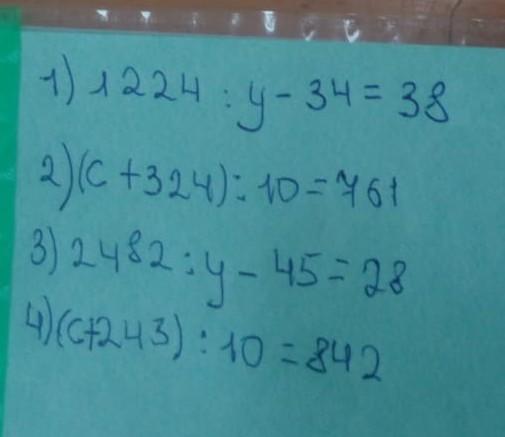 1) 1224 : y - 34 = 38
2) (c + 324) : 10 = 761
3) 2482 : y - 45 = 28
4) (c + 243) : 10 = 842